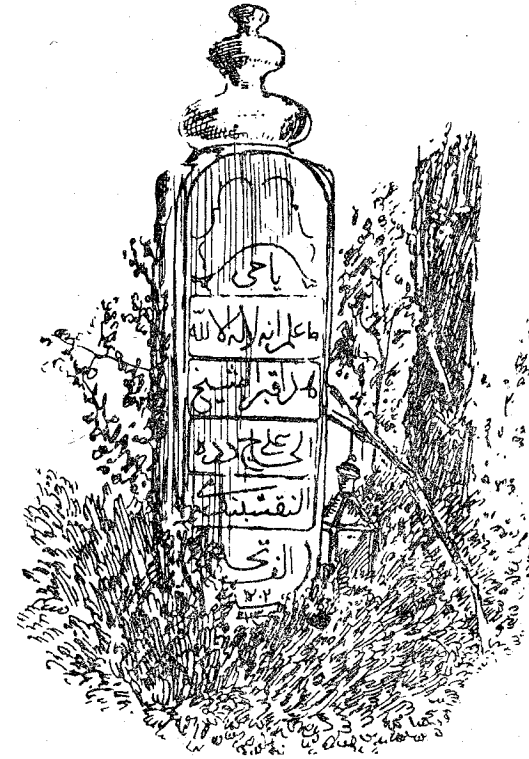 ياحي
فاعلم انه لا اله الا الله
هذا قبر الشيخ
الحاج علي دده
النقشبندي
الفتحه
١٢٠٢